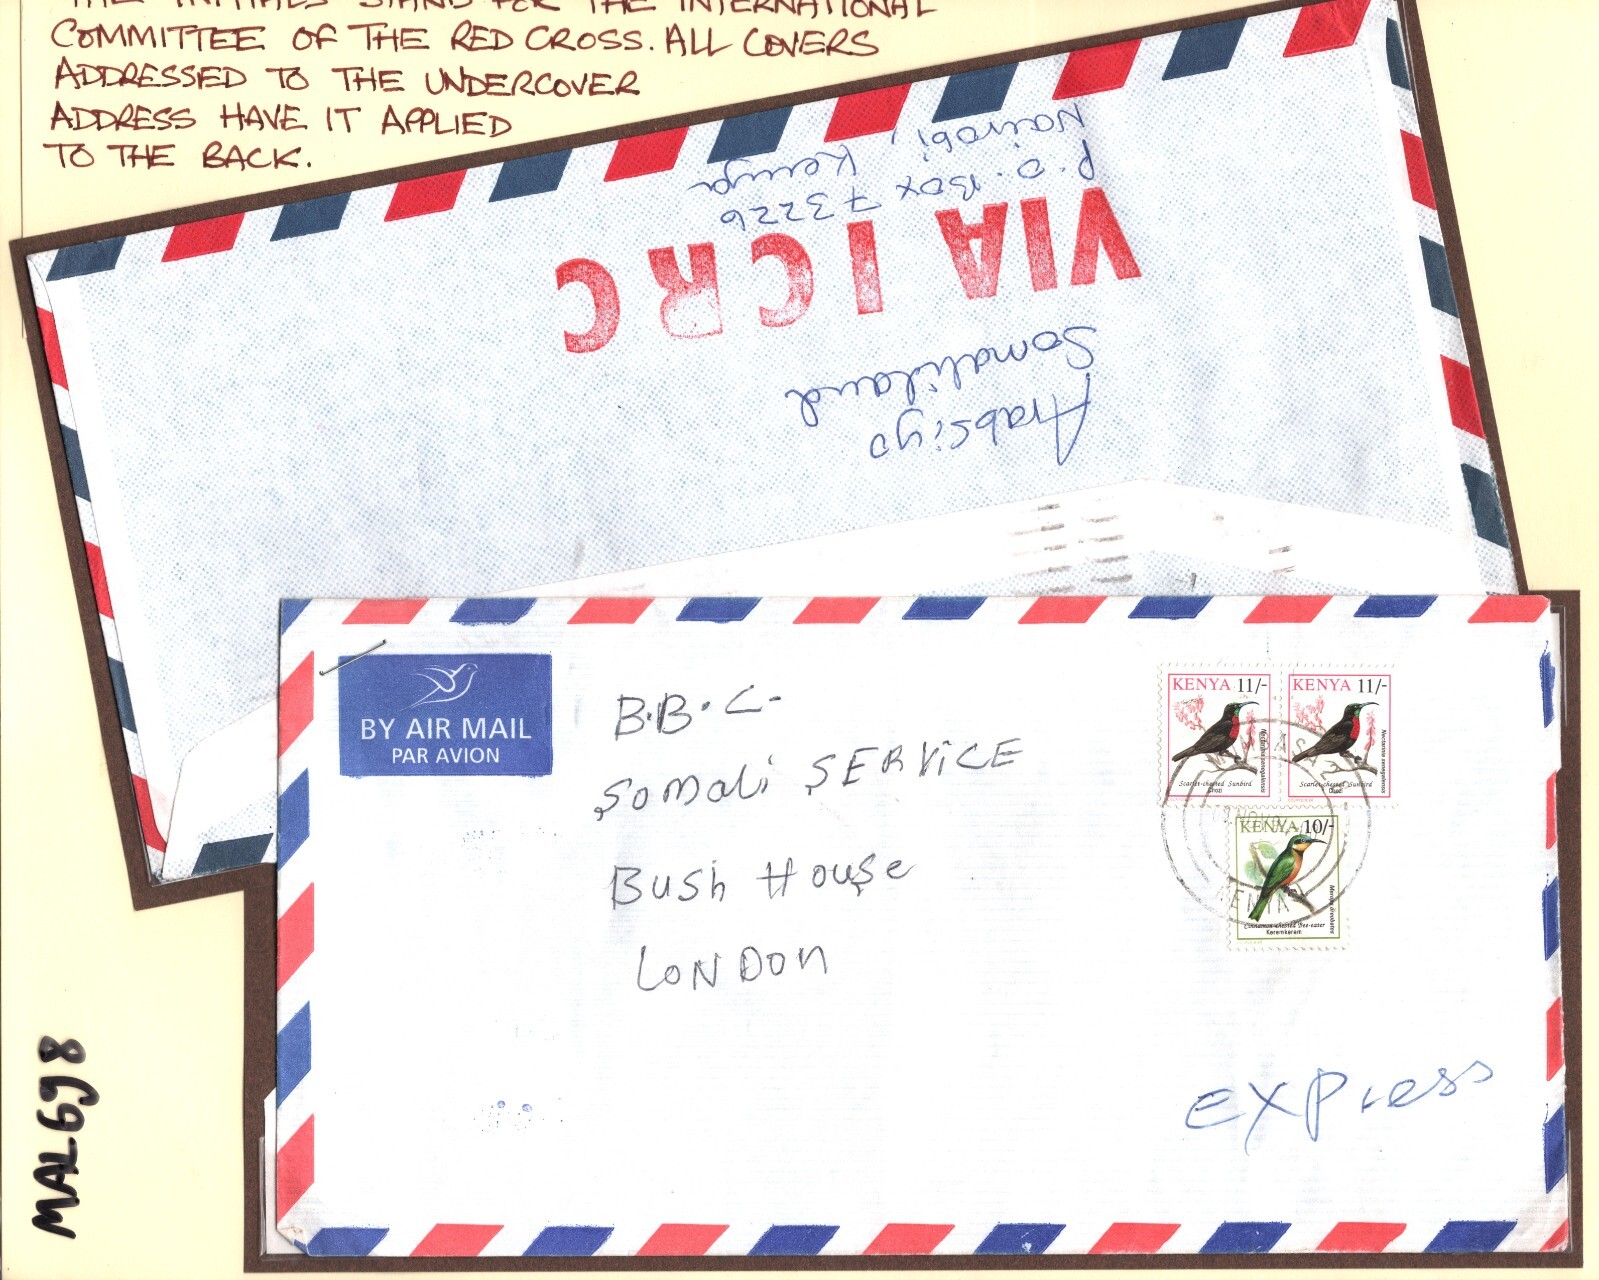 THE INITIALS STAND FOR THE INTERNATIONAL
COMMITTEE OF THE RED CROSS. ALL COVERS
ADDRESSED TO THE UNDERCOVER
ADDRESS HAVE IT APPLIED
TO THE BACK.
Arabsiyo
Somaliland
VIA ICRC
P.O. Box 73226
Nairobi, Kenya
BY AIR MAIL
PAR AVION
B.B.C-
Somali SERVICE
Bush House
LONDON
EXPress
KENYA 11/-
Nectarinia senegalensis
Scarlet-chested Sunbird
Chozi
KENYA 11/-
Nectarinia senegalensis
Scarlet-chested Sunbird
Chozi
KENYA 10/-
Cinnamon-chested Bee-eater
Keremkerem
KENYA
MAL698